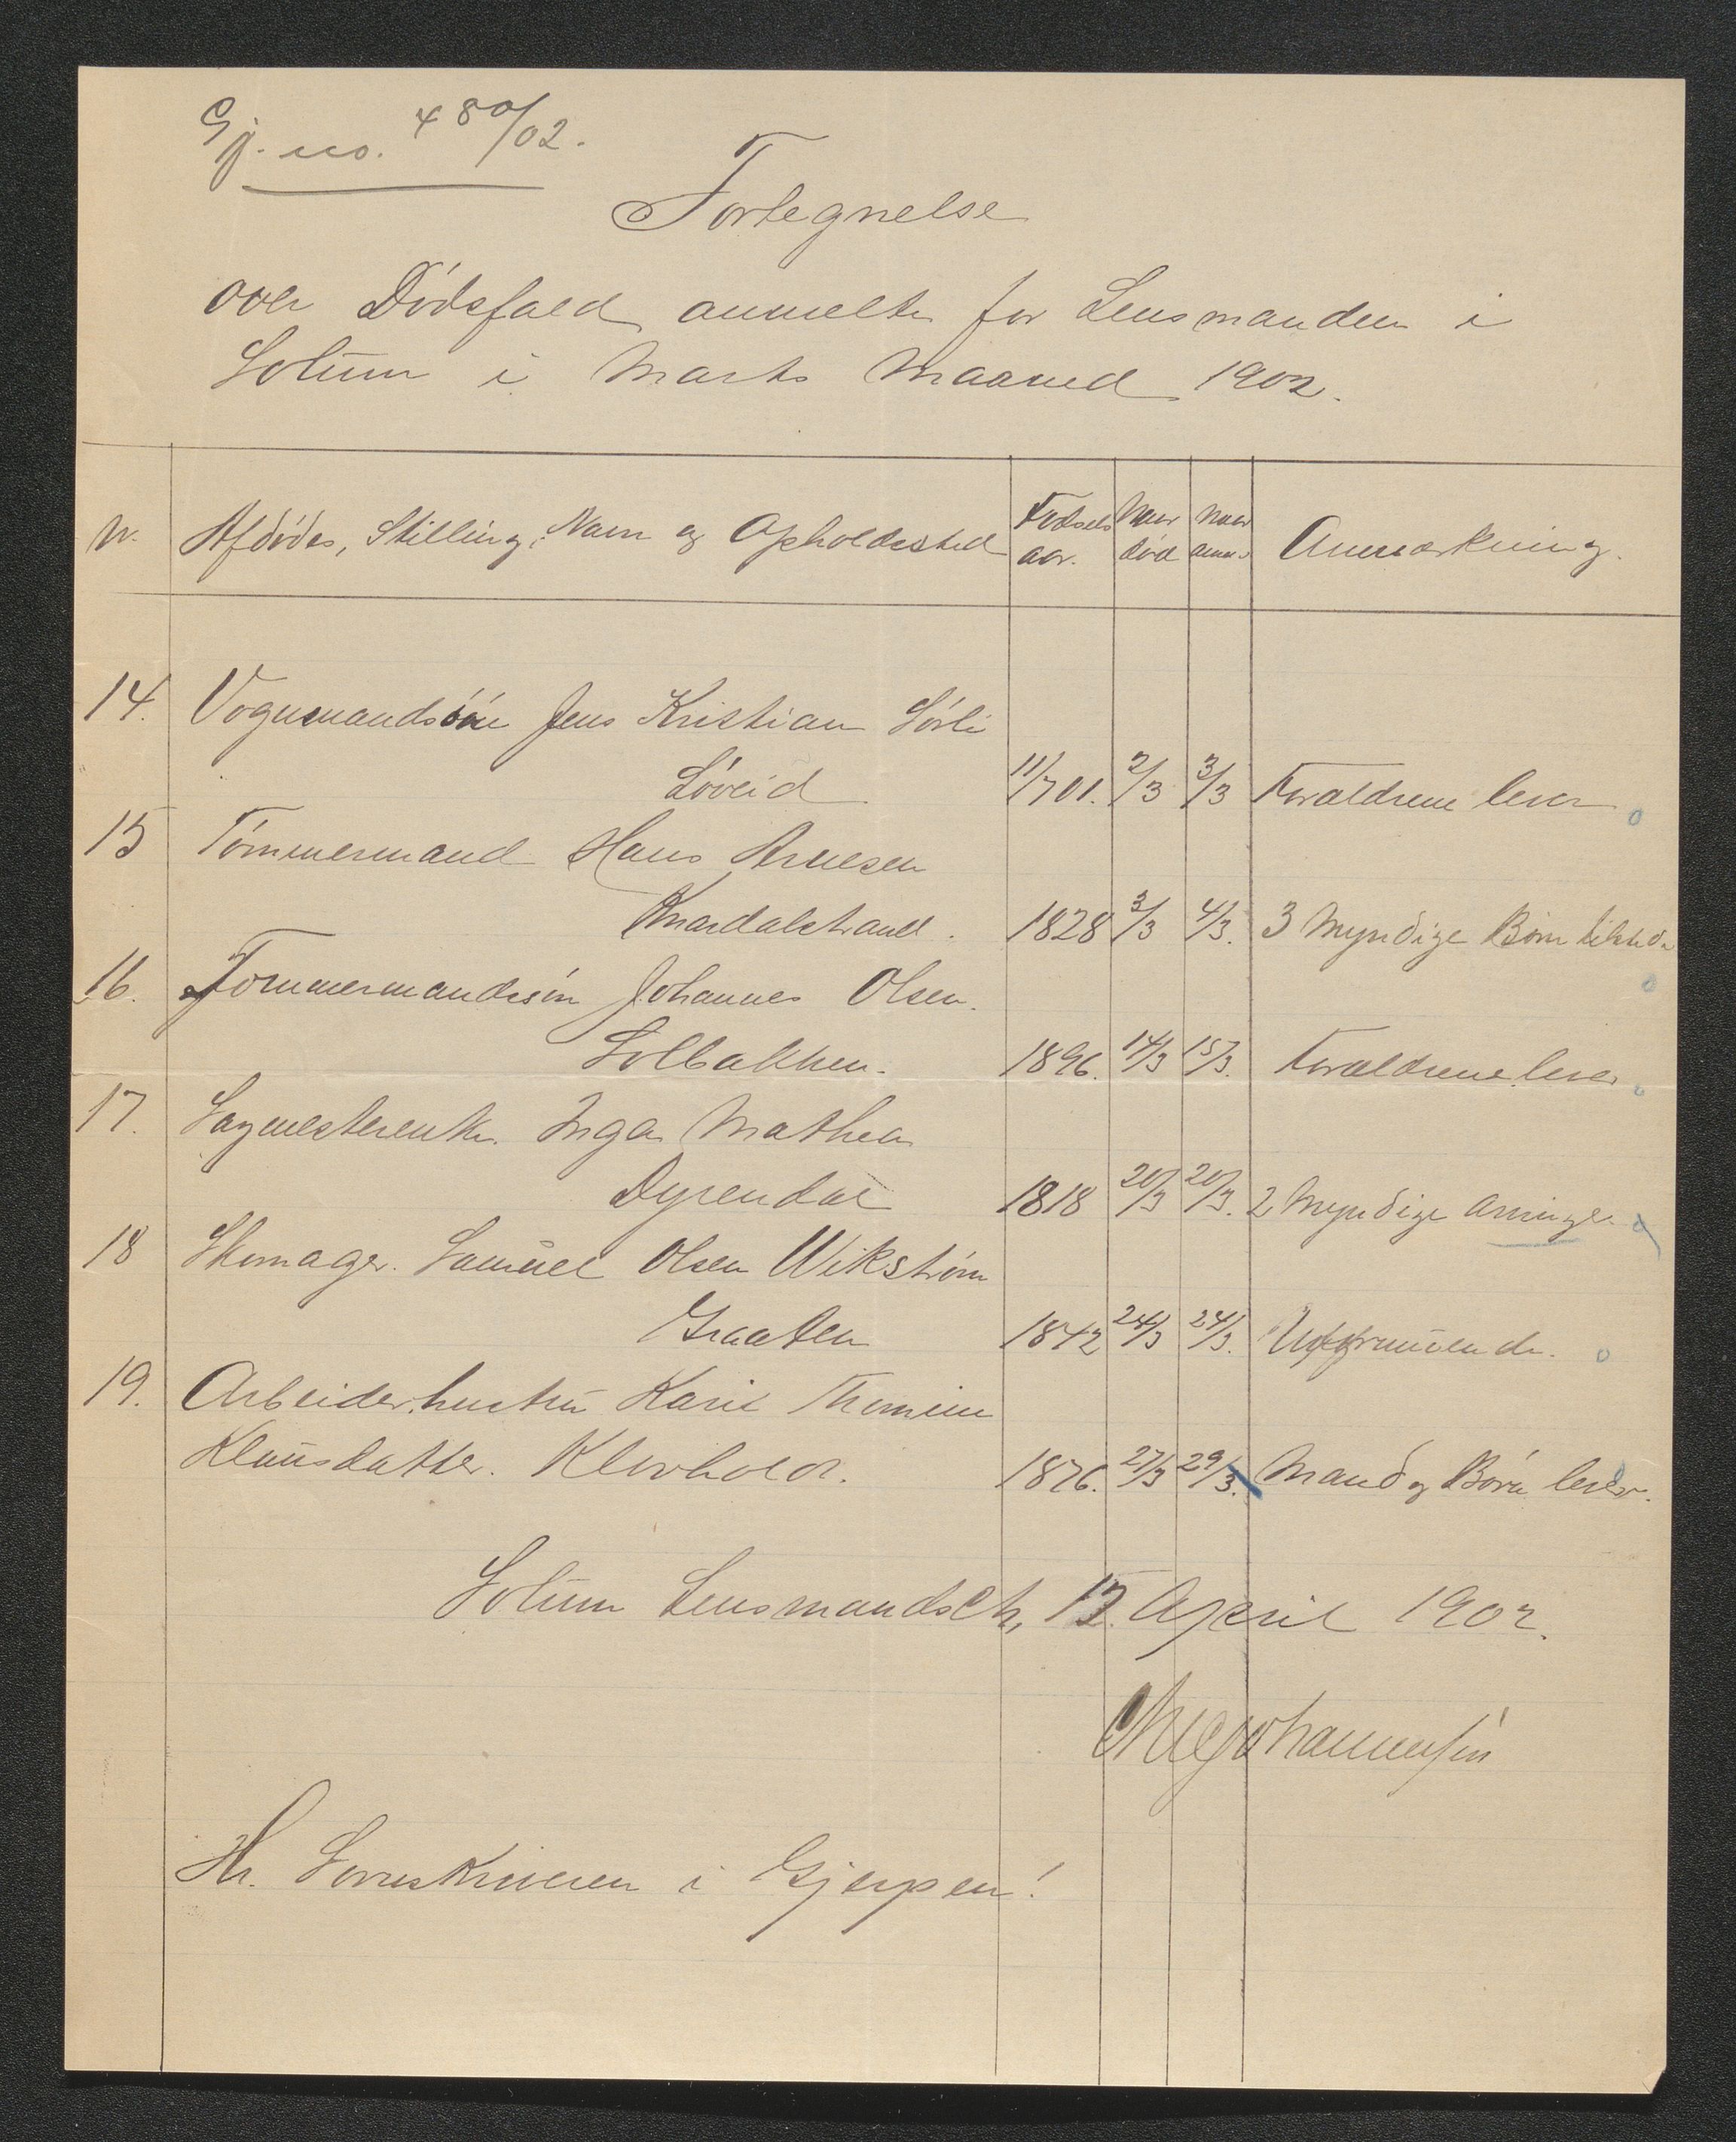 Gj. no. 480/02.
Fortegnelse
over Dödsfald anmeldte for Lensmanden i
Solum i Marts Maaned 1902.
N. Afdödes, Stilling, Navn og Opholdssted Fødsels aar. Naar død Naar anm. Anmærkning.
14. Vognmandssön Jens Kristian Sörli
Löveid 11/701. 2/3 3/3 Forældrene lever
15 Tömmermand Hans Arnesen
Knardalstrand. 1828 3/3 4/3. 3 Myndige Børn tilstede
16. Tømmermandssön Johannes Olsen.
Solbakken. 1896. 14/3 15/3. Forældrene lever
17. Sagmesterenke Inga Mathea
Dyrendal 1818 20/3 20/3. 2 Myndige Arvinger
18 Skomager. Samuel Olsen Wikstrøm
Graaten 1842 24/3 24/3.
19. Arbeiderhustru Karie Thomine
Klausdatter. Klovholt. 1876. 27/3 29/3. Mand og Börn lever.
Solum Lensmandsktr, April 1902.
Johannessen
Hr. Sorenskriveren i Gjerpen!